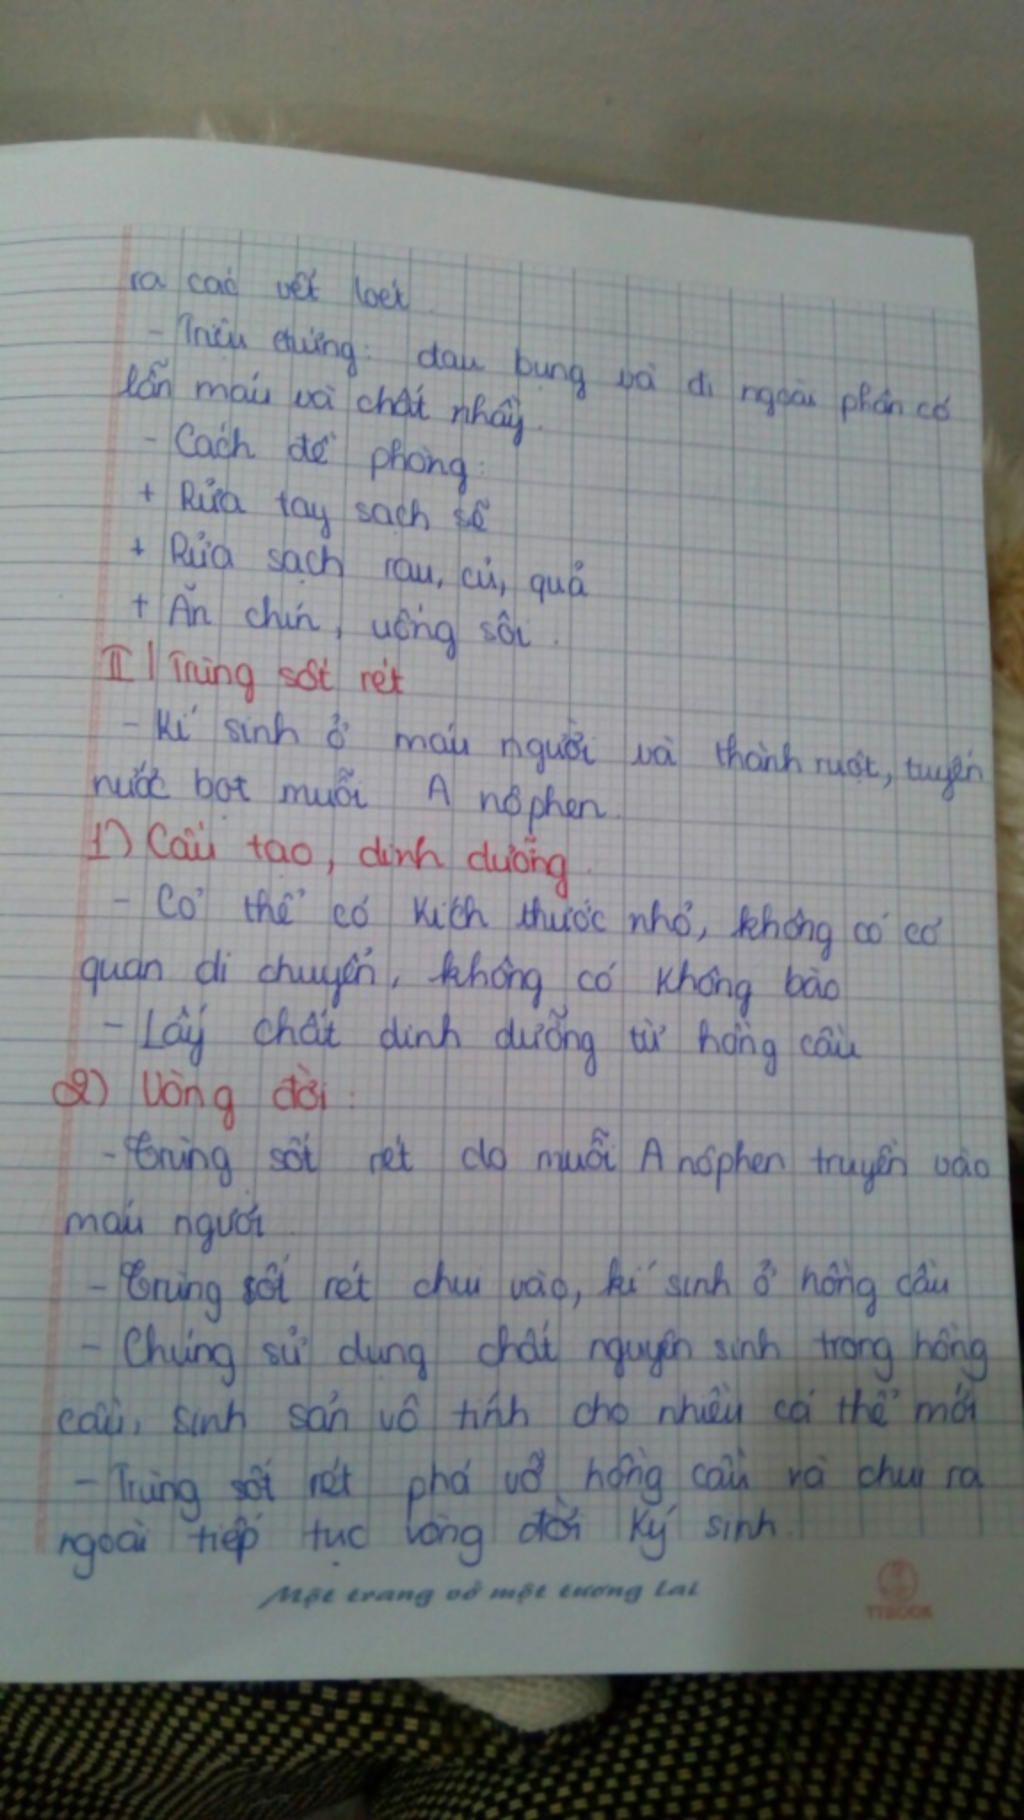 ra các vết loét
- Triệu chứng: đau bụng và đi ngoài phân có
lẫn máu và chất nhầy.
- Cách đề phòng:
+ Rửa tay sạch sẽ
+ Rửa sạch rau, củ, quả
+ Ăn chín, uống sôi.
II / Trùng sốt rét
- Kí sinh ở máu người và thành ruột, tuyến
nước bọt muỗi A nôphen.
1) Cấu tạo, dinh dưỡng.
- Cơ thể có kích thước nhỏ, không có cơ
quan di chuyển, không có không bào
- Lấy chất dinh dưỡng từ hồng cầu
2) Vòng đời:
- Trùng sốt rét do muỗi A nôphen truyền vào
máu người
- Trùng sốt rét chui vào, kí sinh ở hồng cầu
- Chúng sử dụng chất nguyên sinh trong hồng
cầu, sinh sản vô tính cho nhiều cá thể mới
- Trùng sốt rét phá vỡ hồng cầu và chui ra
ngoài tiếp tục vòng đời ký sinh.
Một trang vở một tương lai
TTBOOK